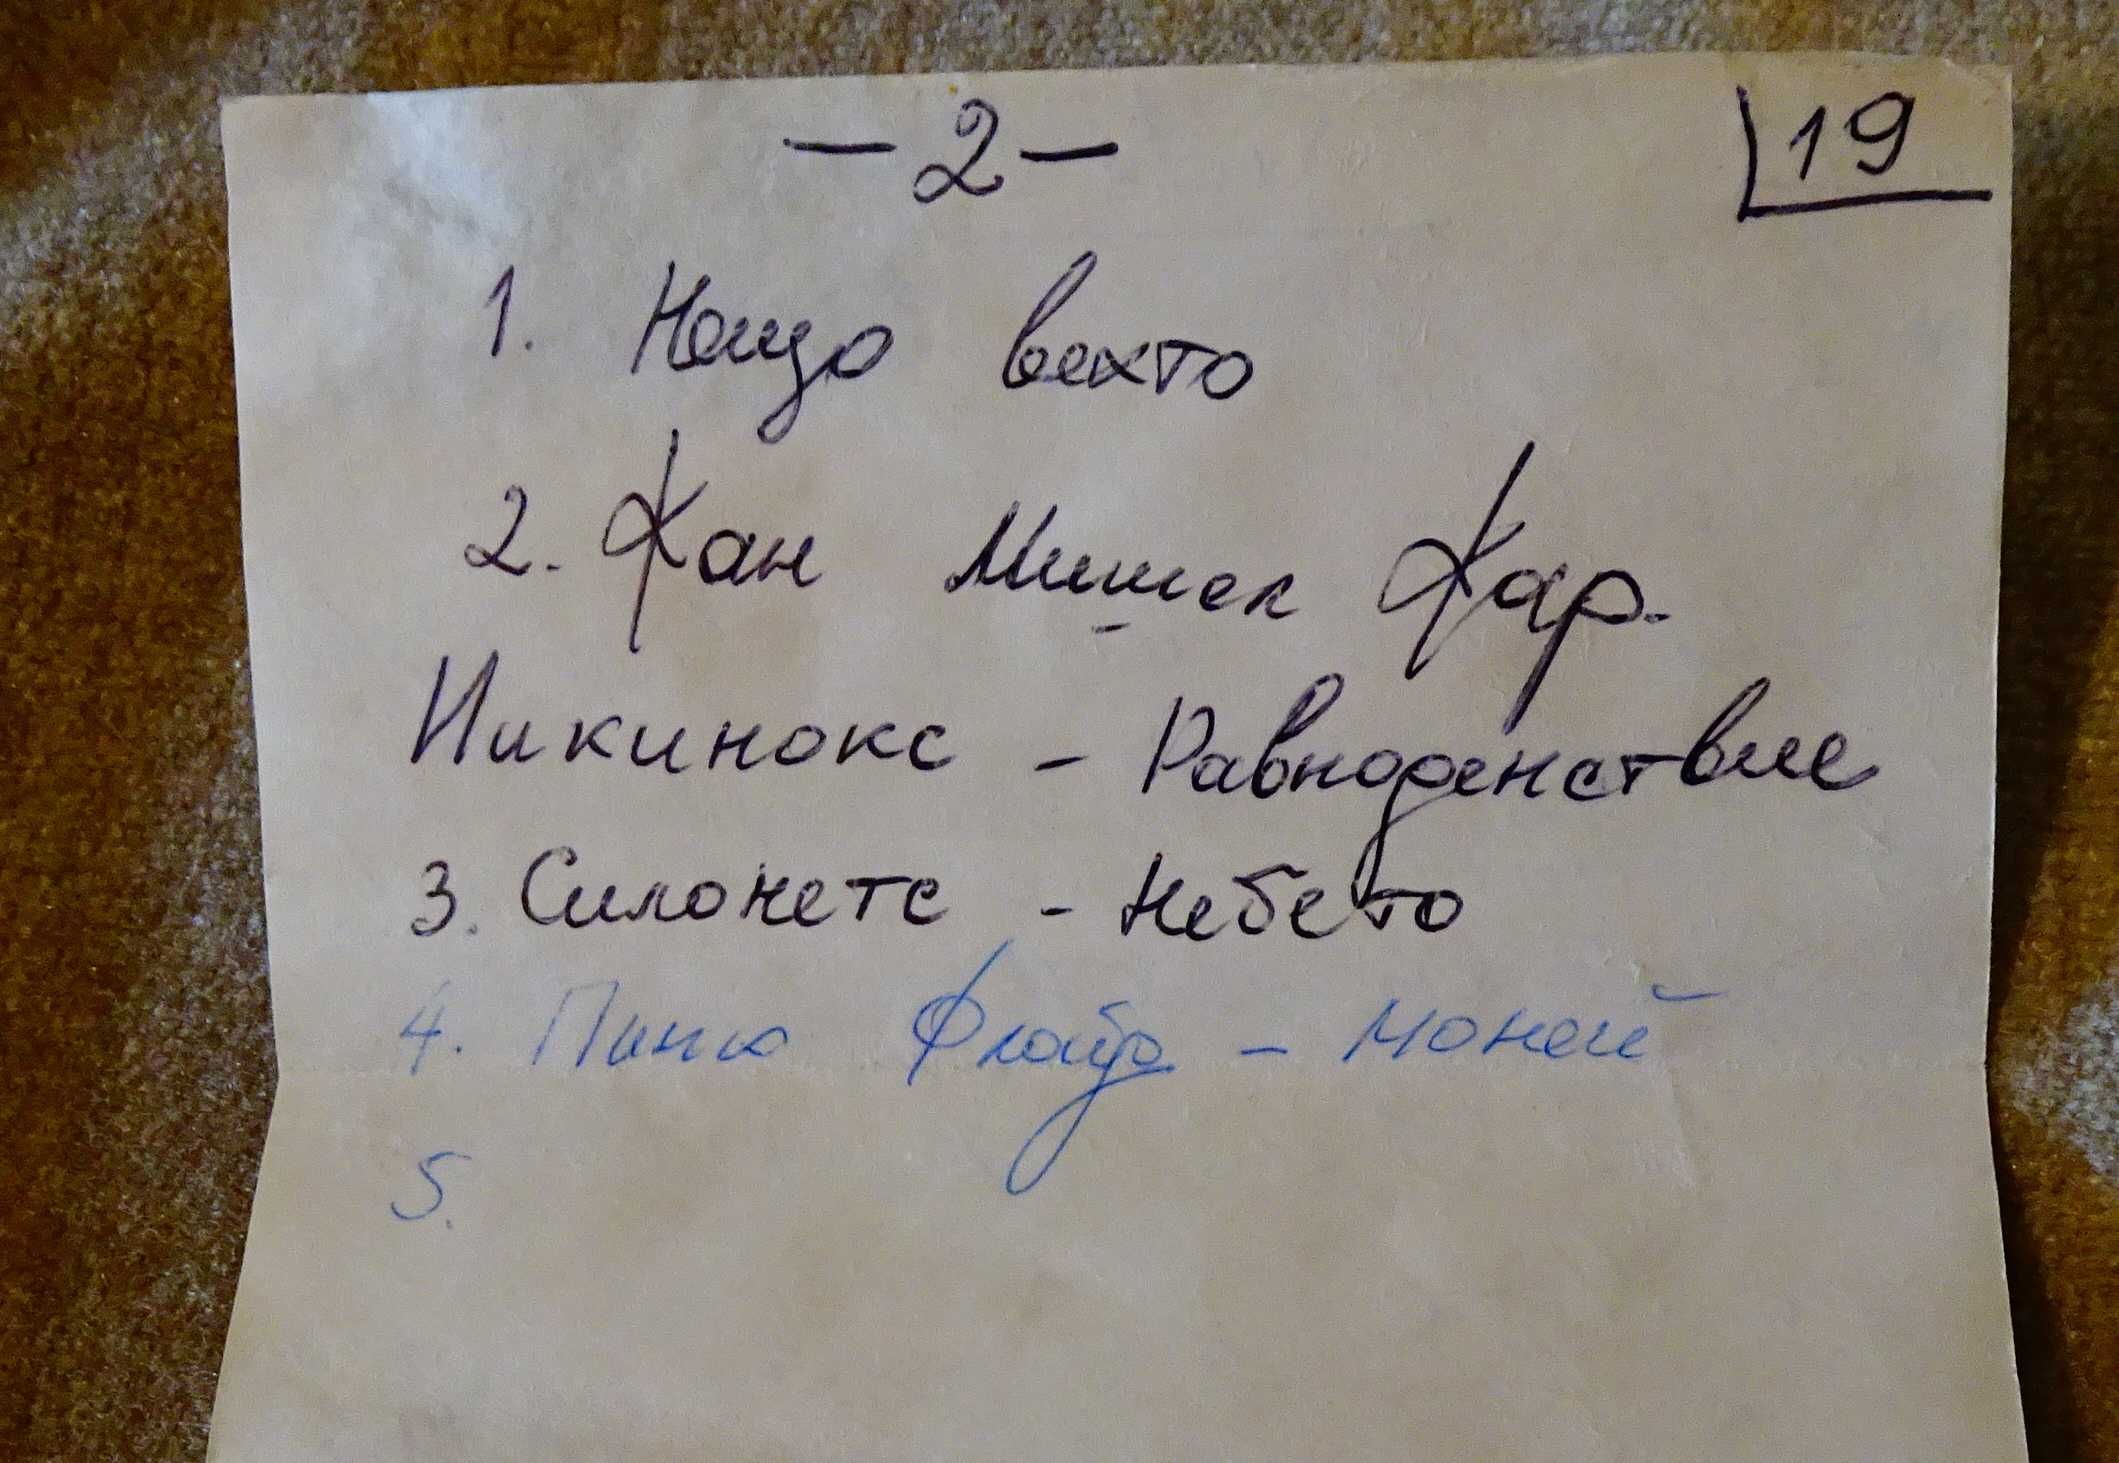 - 2 -
19
1. Нещо вехто
2. Жан Мишел Жар.
Иикинокс - Равноденствие
3. Силонетс - Небето
4. Пинк Флойд - Моней
5.